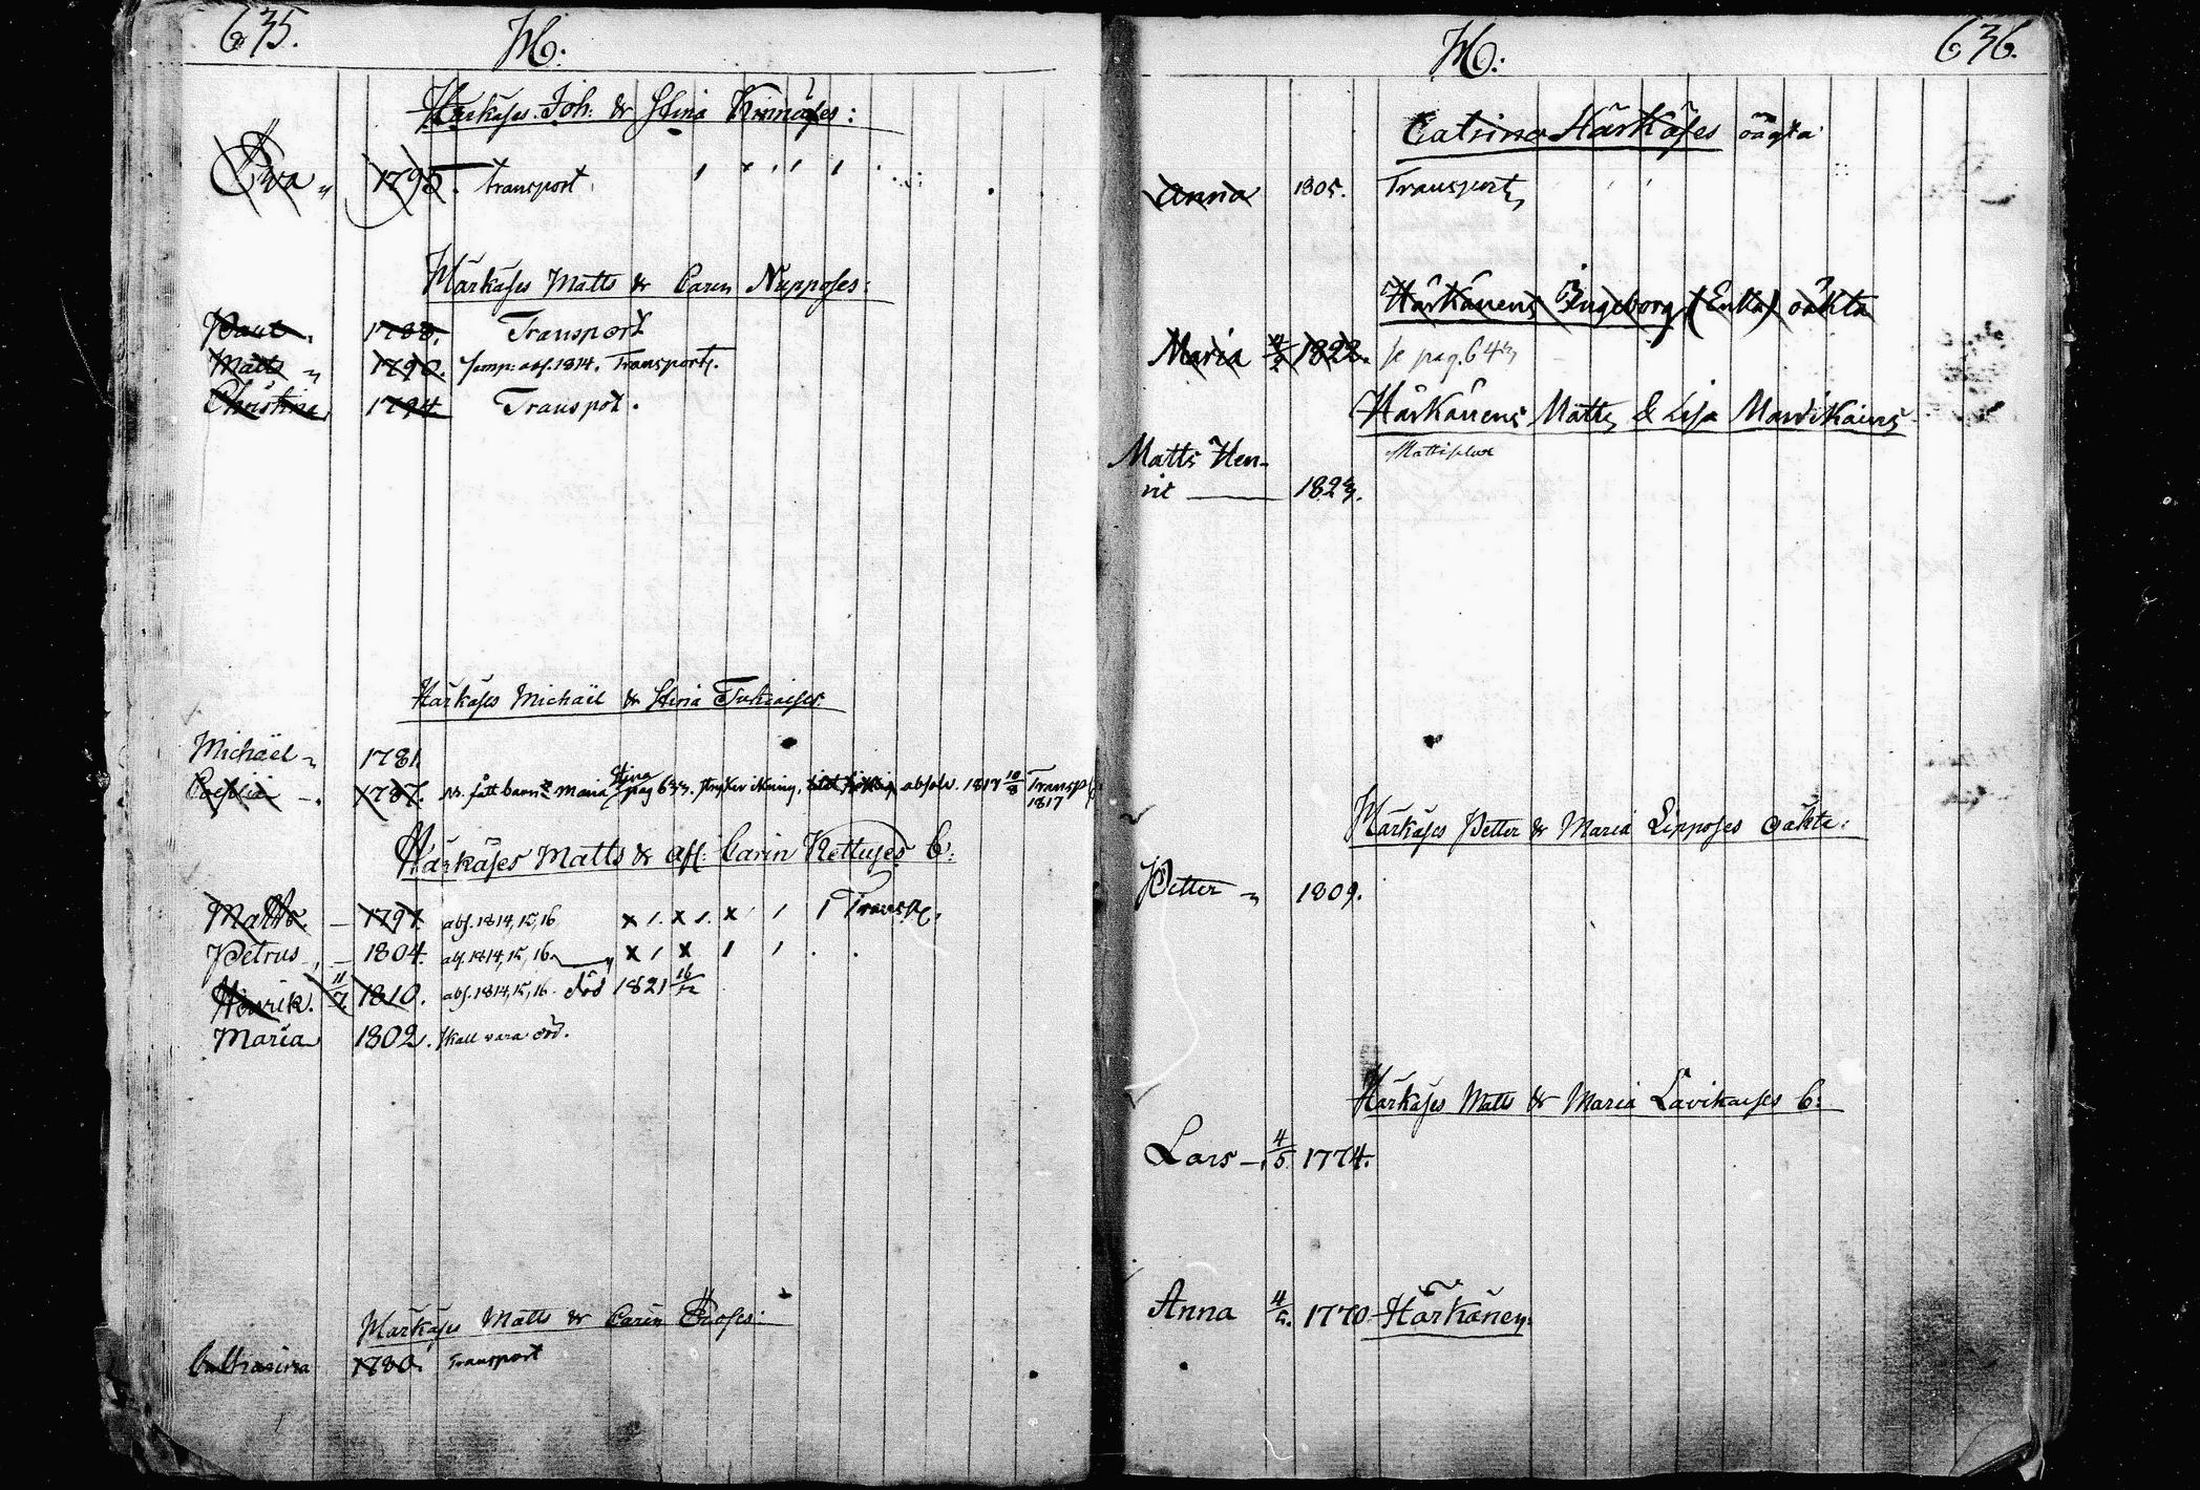 635.
H:
Härkäses Joh: & Stina Kinnäses:
Eva 1795. transport
Härkäses Matts & Carin Nupposes:
Paul 1788. Transport
Matts 1790. abs. 1814. Transport.
Christina 1794 Transpot.
Härkäses Michaël & Stina Tukiaises:
Michaël 1781.
1787. fått barn Maria Stina pag 633. absolv. 1817 10/8 Transp 1817
Härkäses Matts & afl: Carin Kettuses b:
Matts. 1797. abs. 1814, 15, 16 x 1. x 1. x 1 1 Transp.
Petrus 1804. abs. 1814, 15, 16 x 1 x 1 1
Henrik. 11/7 1810. abs. 1814, 15, 16. död 1821 16/12
Maria 1802. skall vara död.
Härkäses Matts & Carin
Cathrina 1780. Transport
636.
H:
Catrina Härkäses oägta
Anna 1805. Transport
Härkänens Ingeborg (Enka) oäkta
Maria 1822. se pag. 643
Härkänens Matts & Lisa
Matts Hen-
ric 1823.
Härkäses Petter & Maria Lipposes oäkta:
Petter 1809.
Härkäses Matts & Maria Lavikaises b:
Lars 4/5. 1774.
Anna 1770 Härkänen